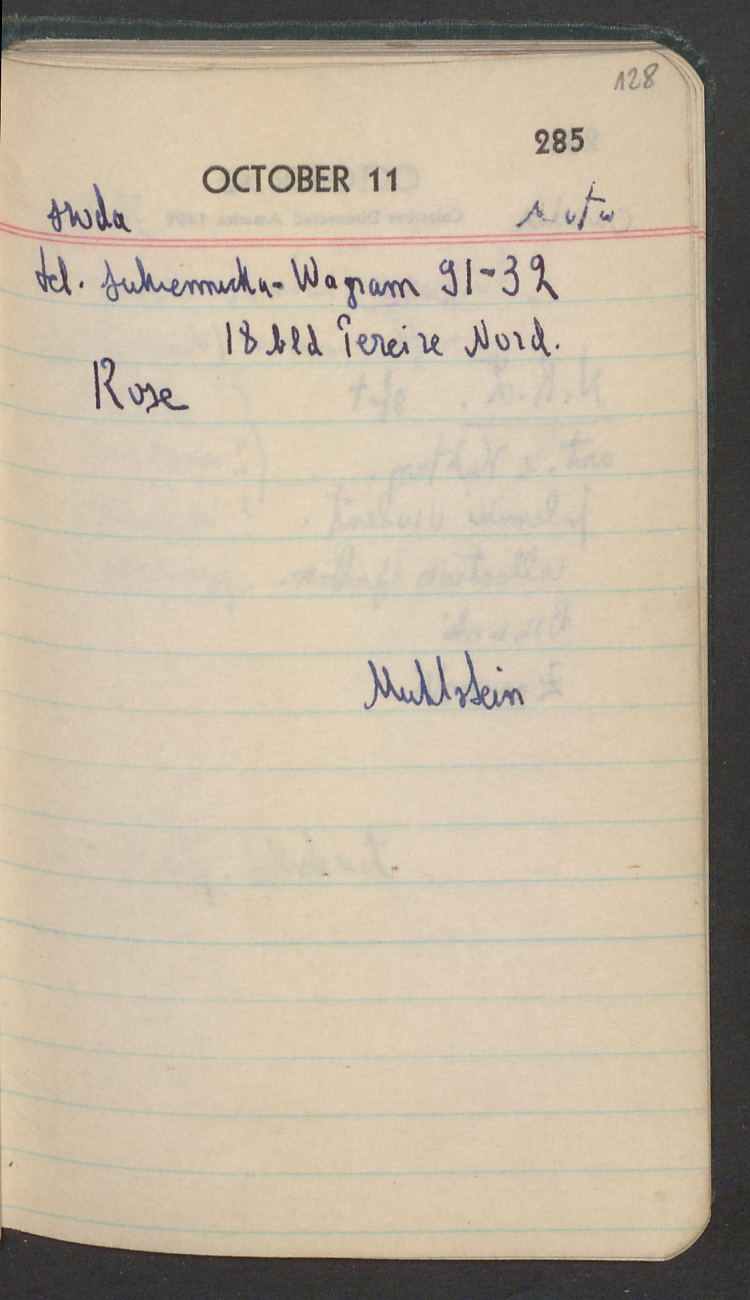 128
285
OCTOBER 11
środa
tel. Sukiennicka - Wagram 91-32
18 bld Pereire Nord.
Rose
Muhlstein